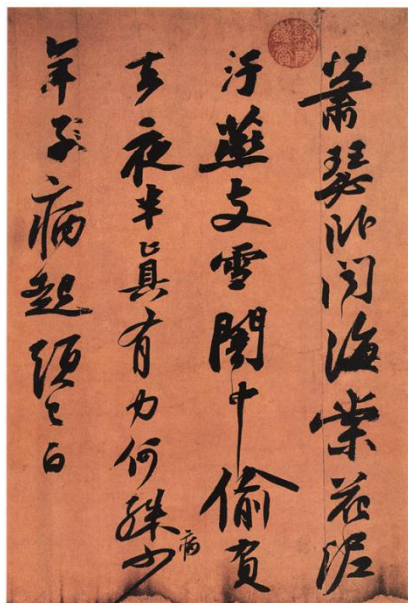 蕭瑟臥聞海棠花泥
汙燕支雪闇中偷負
去夜半眞有力何殊少
病
年子病起頭已白